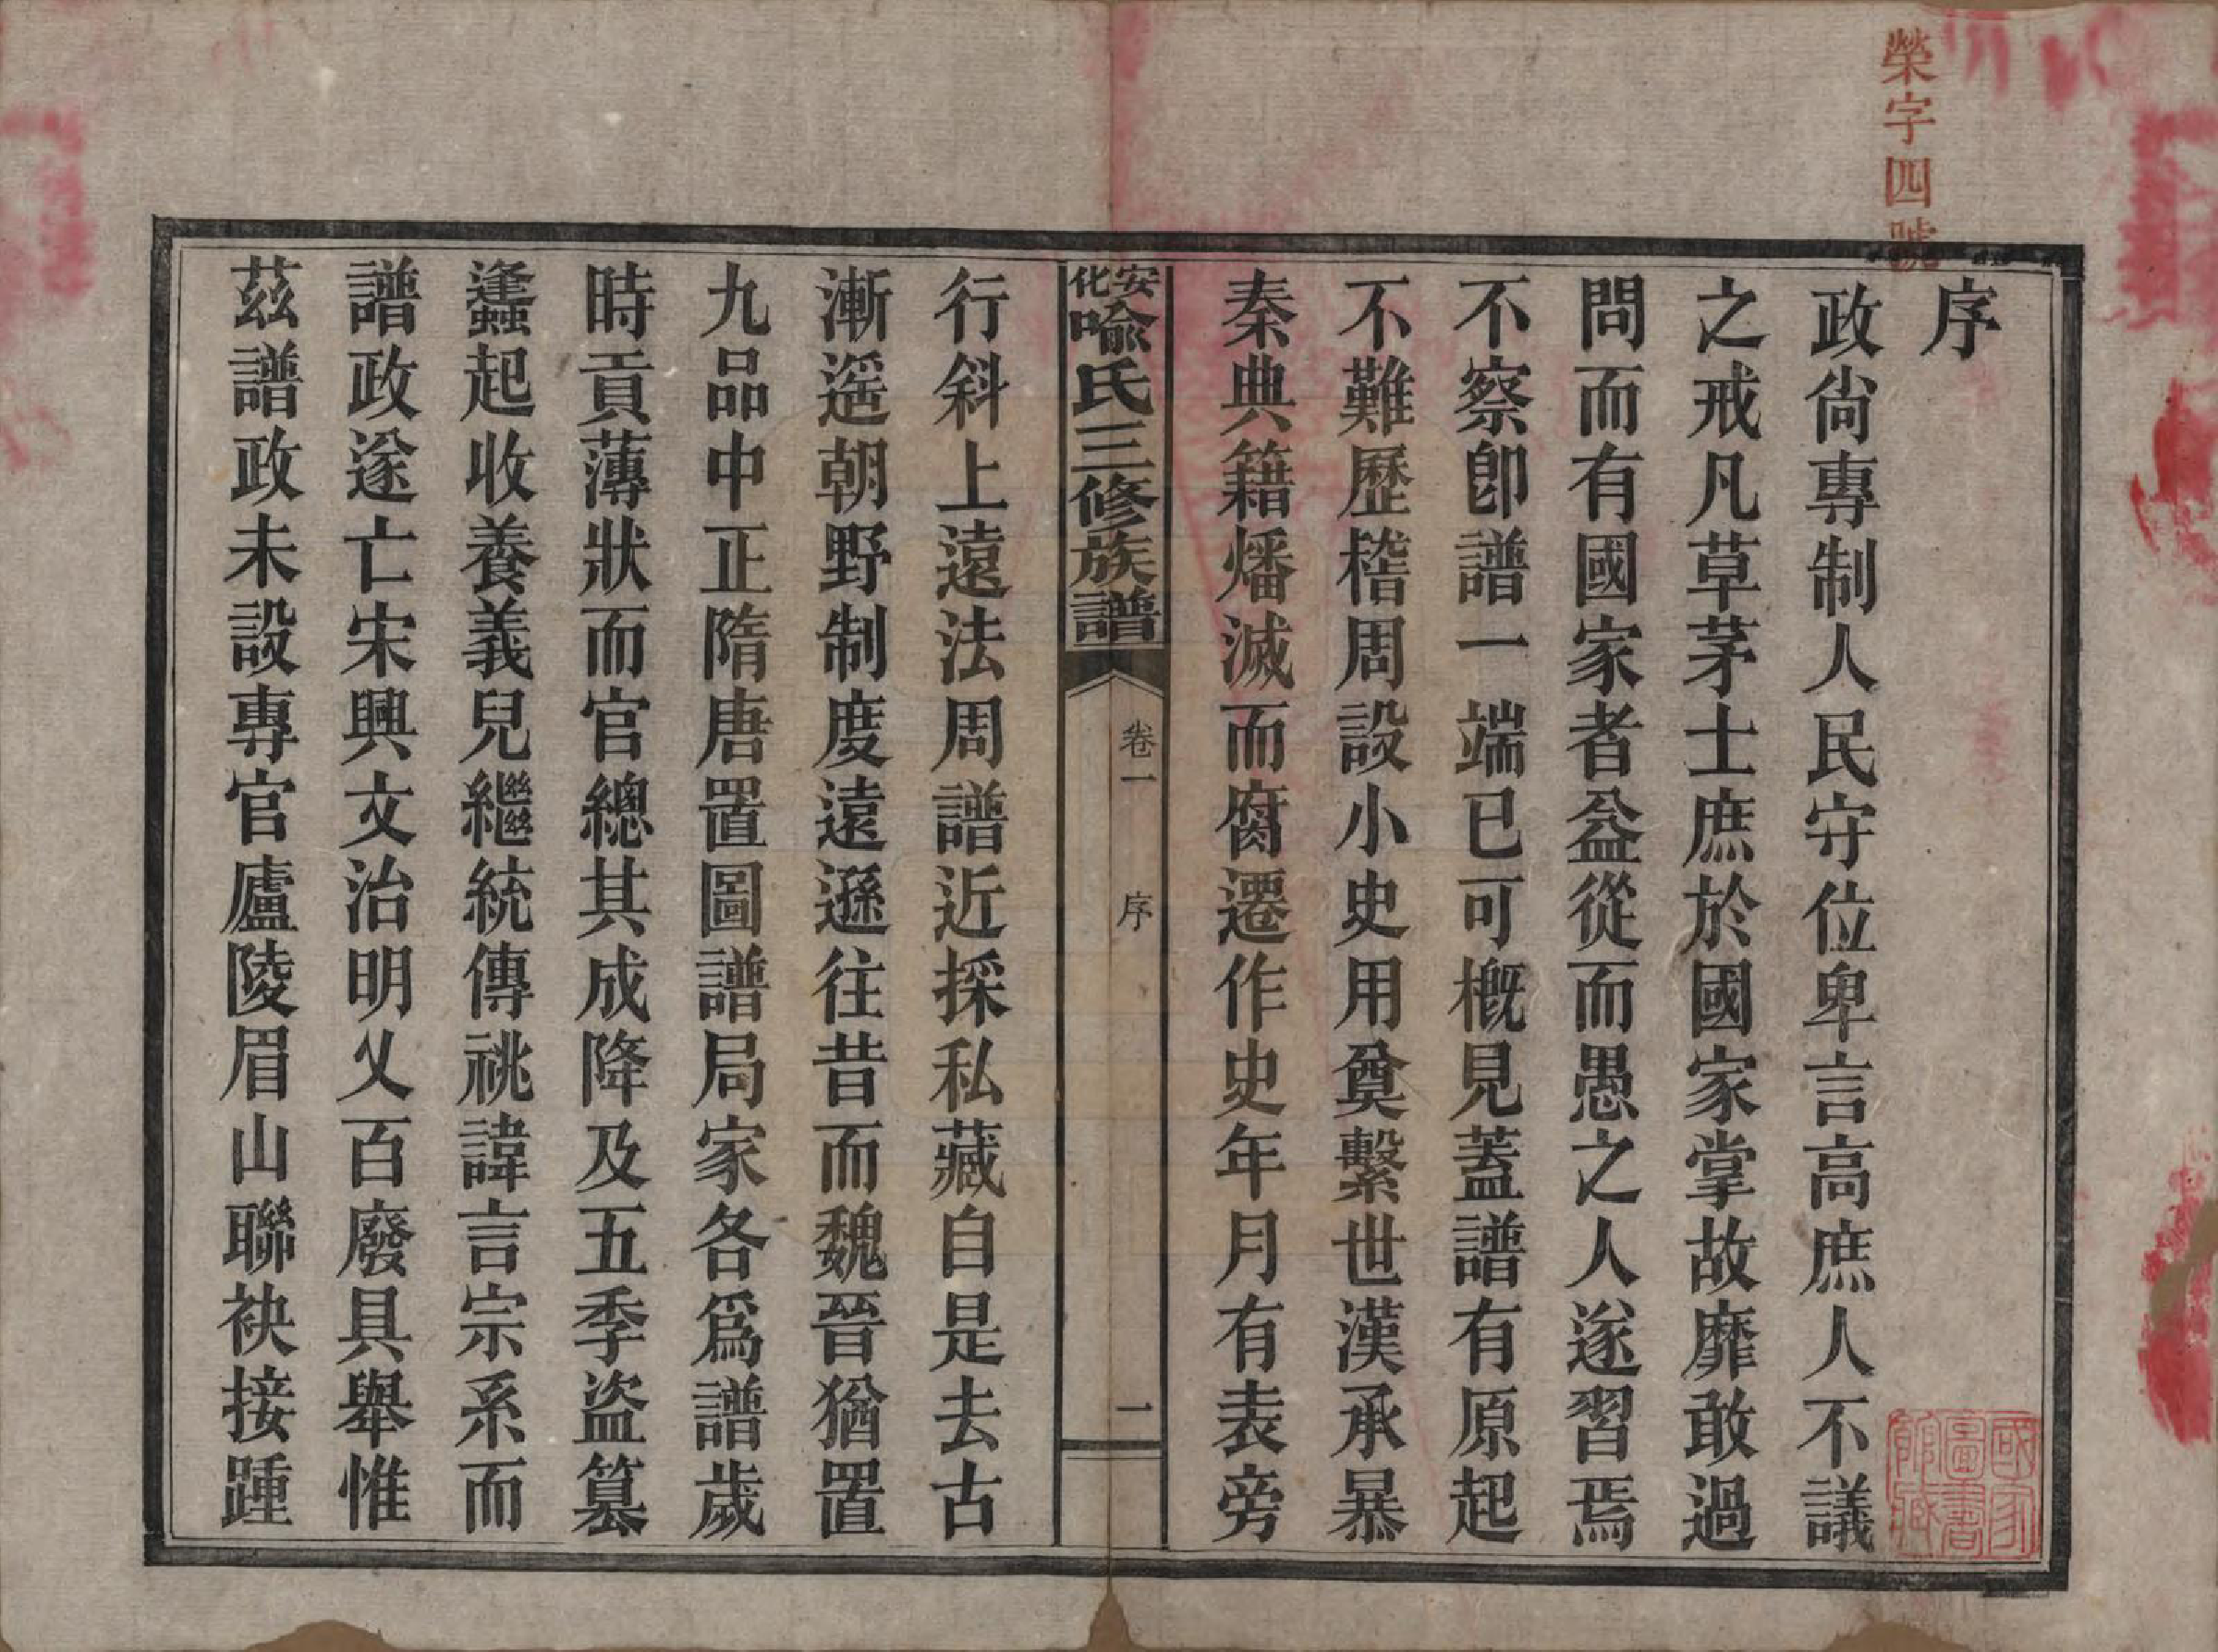 榮字四號
序
政尙專制人民守位卑言高庶人不議
之戒凡草茅士庶於國家掌故靡敢過
問而有國家者益從而愚之人遂習焉
不察卽譜一端已可概見蓋譜有原起
不難歷稽周設小史用奠繫世漢承暴
秦典籍燔滅而腐遷作史年月有表旁
安化喩氏三修族譜
卷一
序
一
行斜上遠法周譜近採私藏自是去古
漸遥朝野制度遠遜往昔而魏晉猶置
九品中正隋唐置圖譜局家各爲譜歲
時貢薄狀而官總其成降及五季盜篡
蠭起收養義兒繼統傳祧諱言宗系而
譜政遂亡宋興文治明乂百廢具舉惟
茲譜政未設專官廬陵眉山聯袂接踵
國家圖書館藏